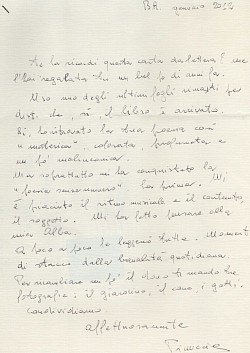 B.A. gennaio 2013
Te la ricordi questa carta da lettera? me
l'hai regalata tu un bel po' di anni fa.
Uso uno degli ultimi fogli rimasti per
dirti che, sì, il libro è arrivato.
Sì, ho ritrovato la tua poesia così
colorata, profumata e
un po' malinconica.
Ma soprattutto mi ha conquistato la
"poesia
la prima. Mi
è piaciuto il ritmo musicale e il contenuto,
il soggetto. Mi ha fatto pensare alla
mia Alba.
A poco a poco le leggerò tutte. Momenti
di stacco dalla banalità quotidiana.
Per ricambiare un po' il dono ti mando tre
fotografie: il giardino, il cane, i gatti.
Condividiamo
affettuosamente